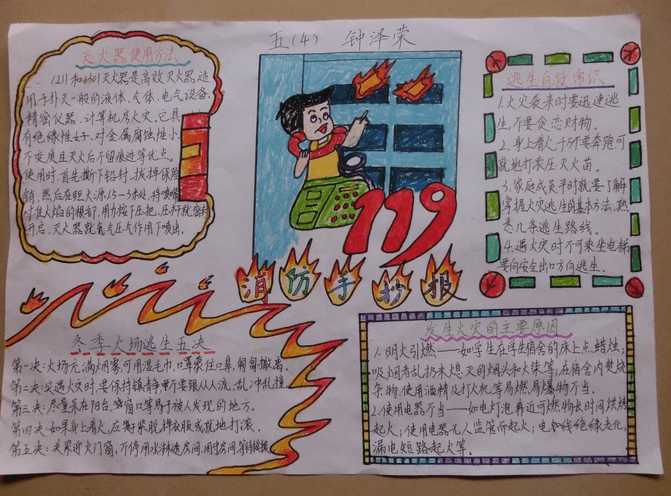 五(4) 钟泽荣
灭火器使用方法
1211和1301灭火器是高效灭火器,适
用于扑灭一般的液体、气体、电气设备、
精密仪器、计算机房火灾。它具
有绝缘性好、对金属腐蚀性小、
不变质且灭火后不留痕迹等优点。
使用时首先撕下铅封、拔掉保险
销,然后在距火源1.5—3米处,将喷嘴
对准火焰的根部,用力按下压把,压杆就
开启,灭火器就氮气压气作用下喷出。
119
消防手抄报
逃生自救常识
1.火灾袭来时要迅速逃
生,不要贪恋财物。
2.身上着火,千万不要奔跑可
就地打滚压灭火苗。
3.家庭成员平时就要了解
掌握火灾逃生的基本方法,熟
悉几条逃生路线。
4.遇火灾时不可乘坐电梯
要向安全出口方向逃生。
冬季火场逃生五决
第一决:火场充满烟雾,可用湿毛巾、口罩
第二决:突遇火灾时,要保持镇静
第三决:尽量呆在阳台、窗口等易于被人发现的地方。
第四决:如果身上着火,应赶紧脱掉衣服或就地打滚。
第五决:关紧迎火门窗
发生火灾的主要原因
1.明火引燃——如学生在学生宿舍的床上点蜡烛;
吸烟者乱扔未熄灭的烟头和火柴等,在宿舍内焚烧
杂物、使用酒精及打火机等易燃易爆物不当。
2.使用电器不当——如电灯泡靠近可燃物长时间烘烤
起火;使用电器无人监管而起火;电器线绝缘老化,
漏电短路起火等。